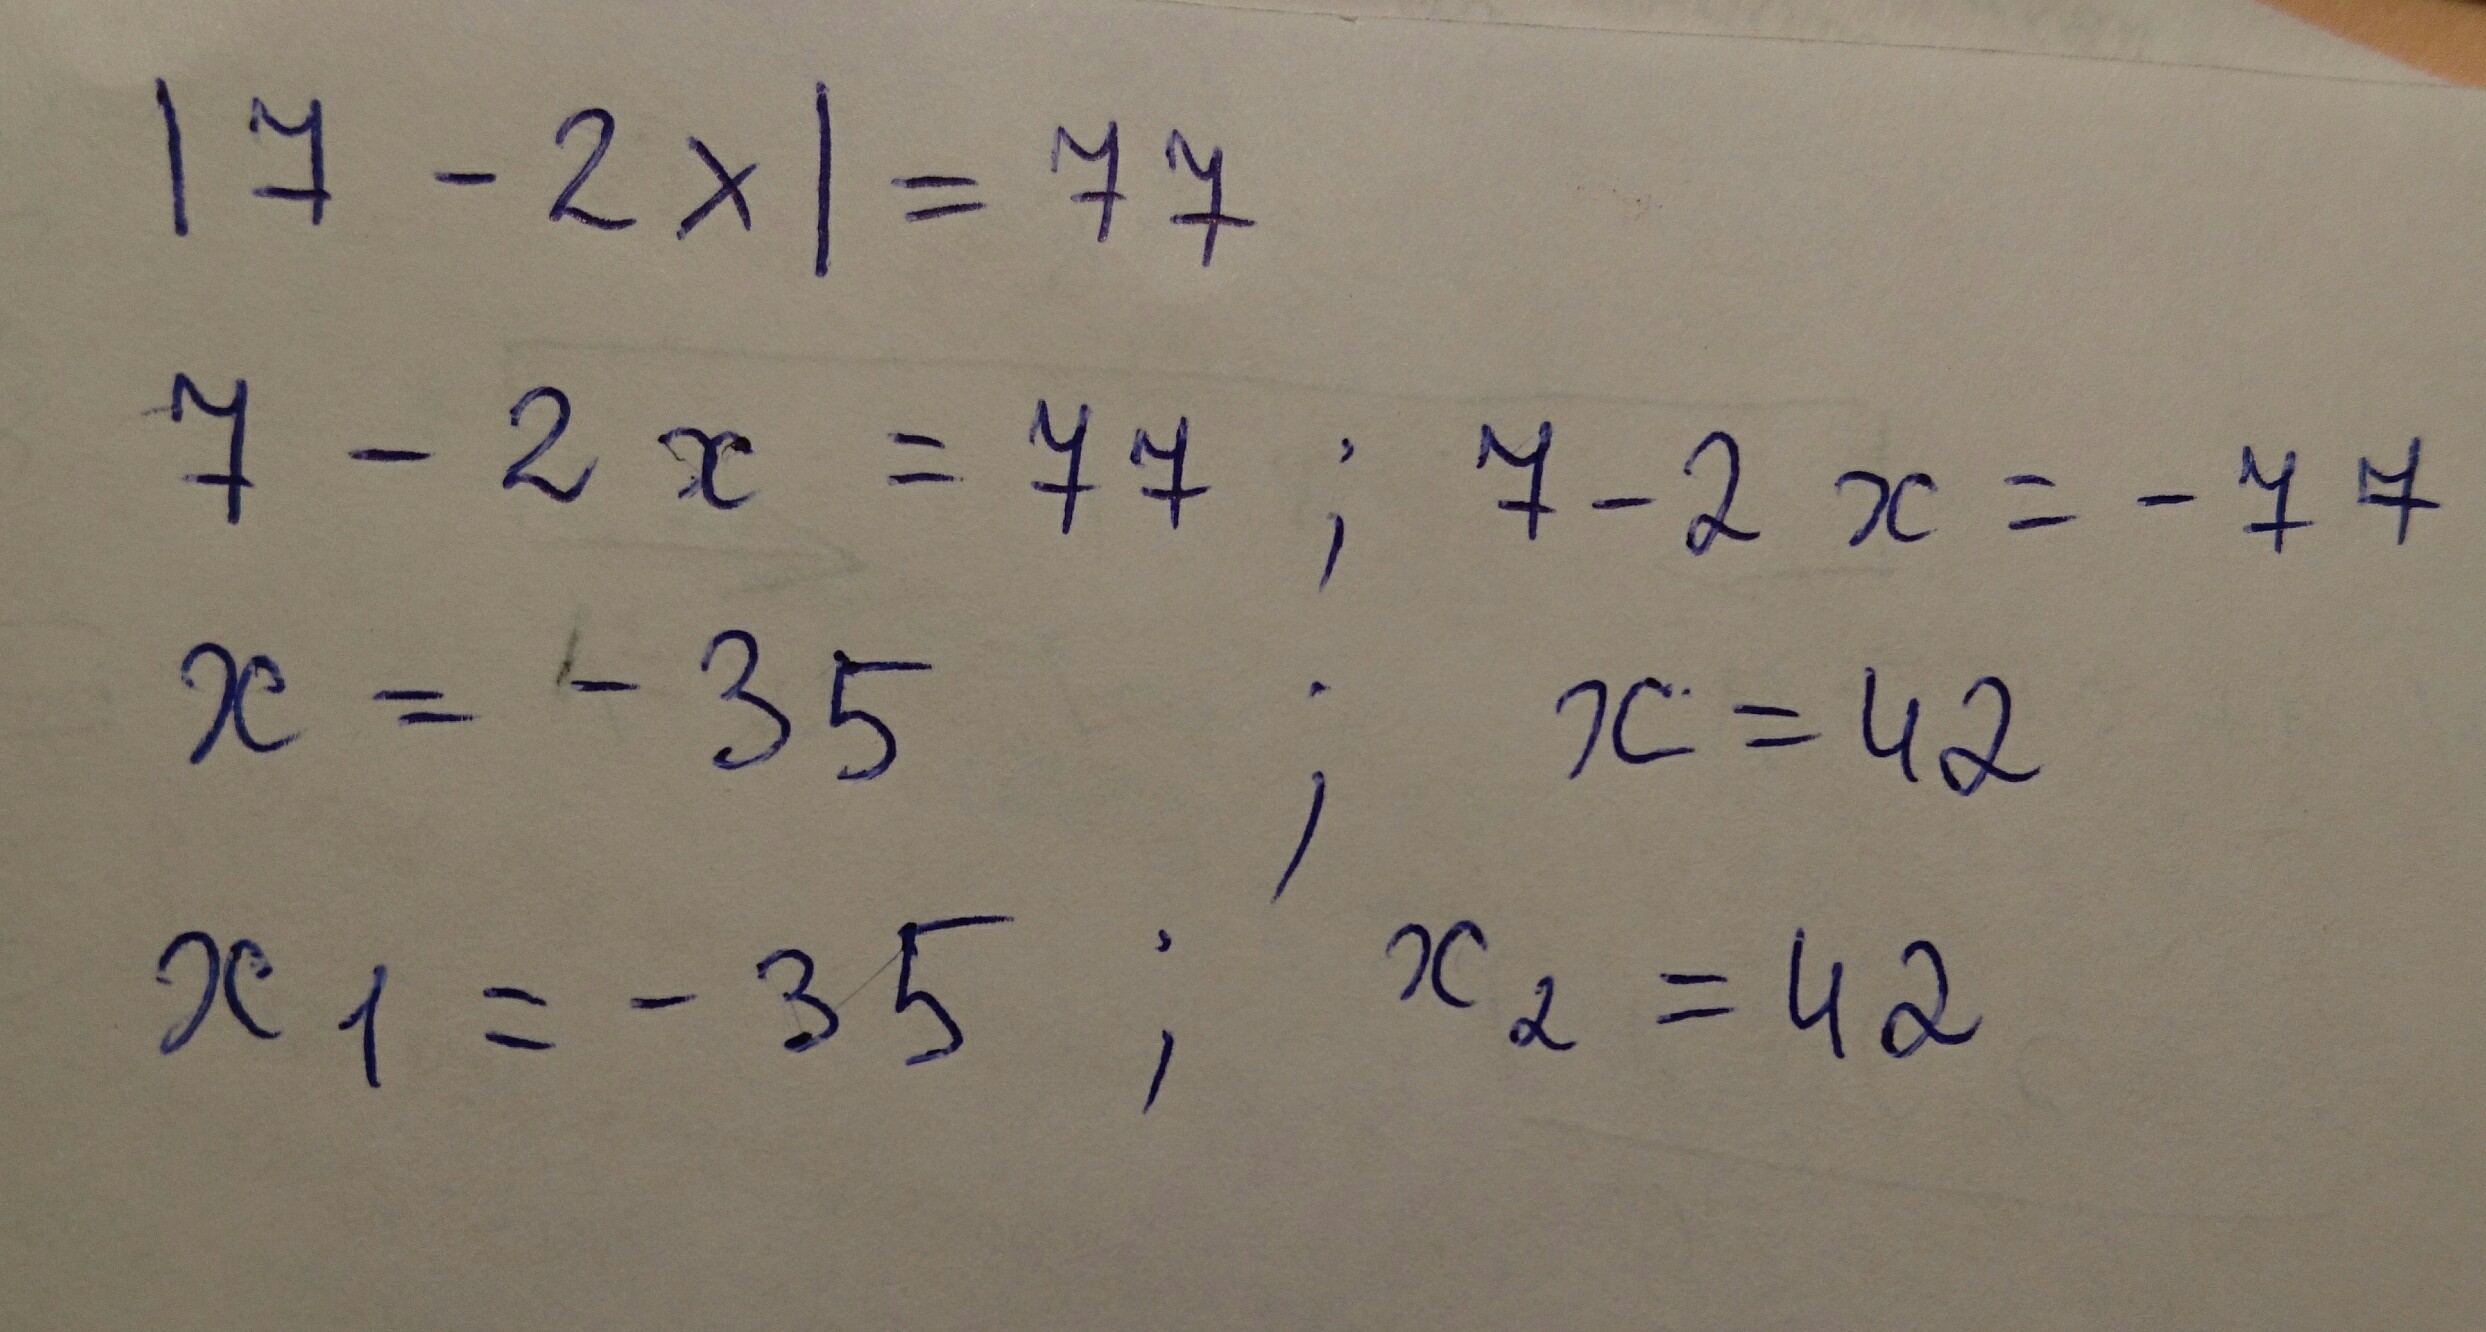 |7 - 2x| = 77
7 - 2x = 77 ; 7 - 2x = -77
x = -35 ; x = 42
x₁ = -35 ; x₂ = 42